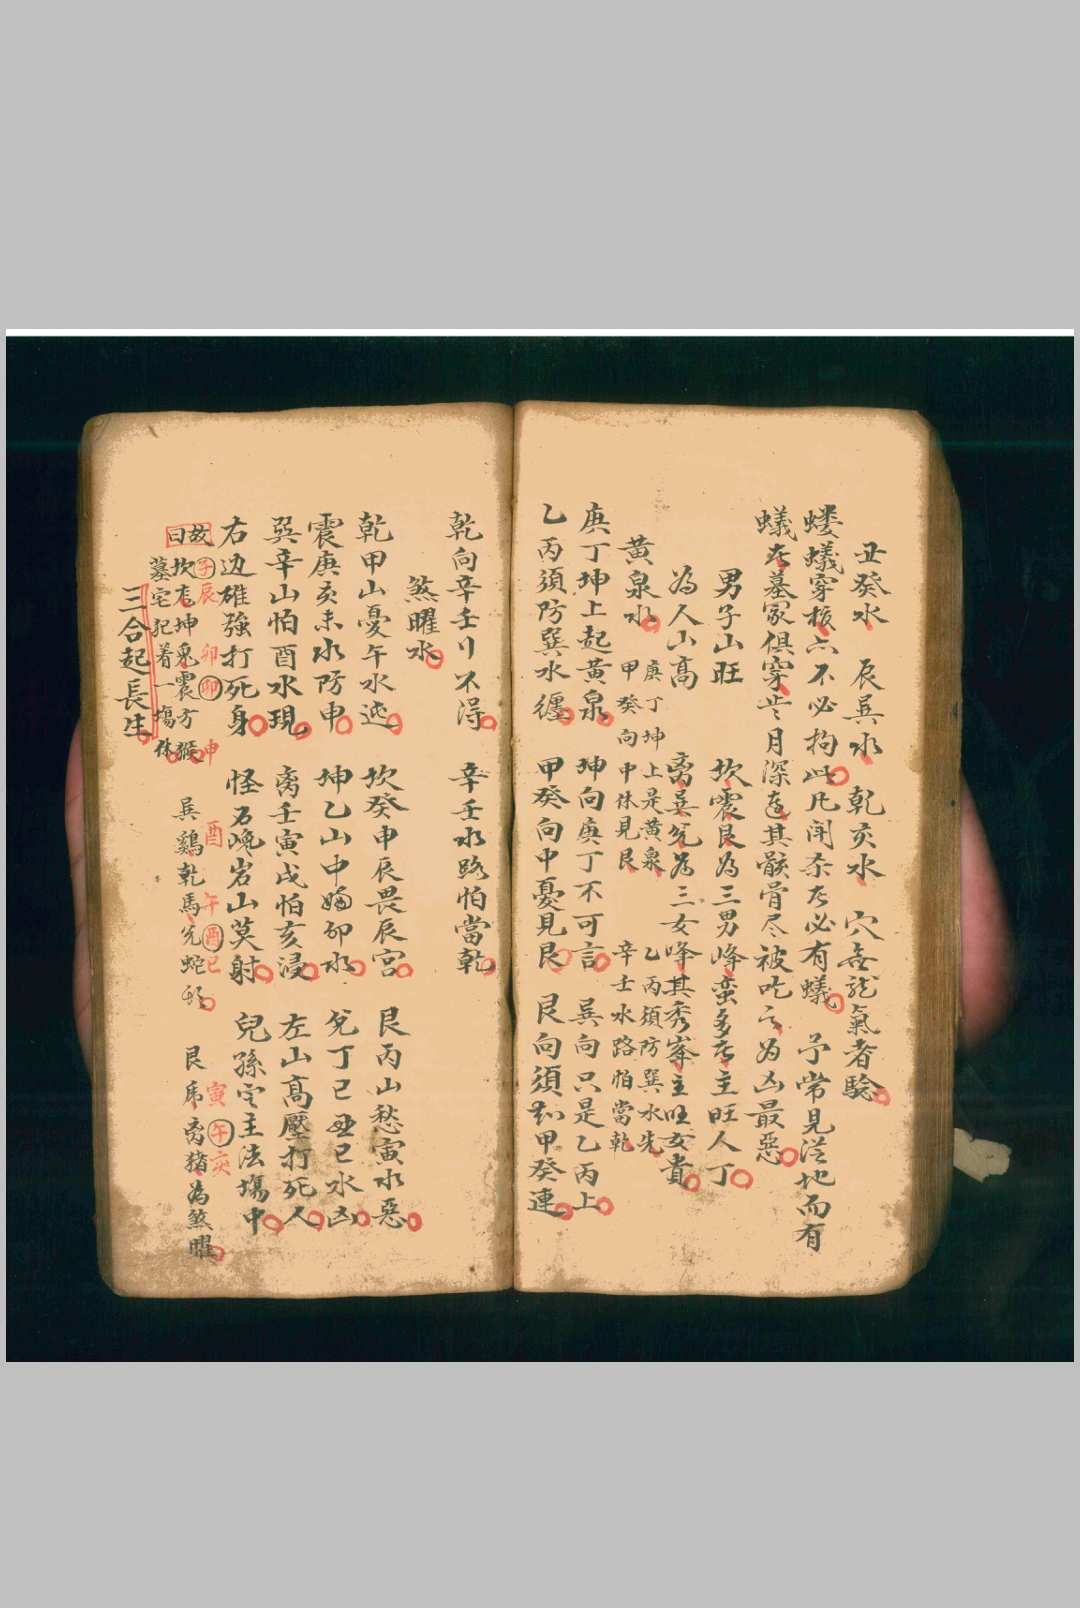 丑癸水 辰巽水 乾亥水 穴無龍氣者驗
蝼蟻穿棺亦不必拘此凡開奈右必有蟻 予常見淫地而有
蟻在墓冢俱穿 年月深遠其骸骨尽被吃之為凶最惡
男子山旺 坎震艮為三男峰蛮多在主旺人丁
為人山高 离巽兊為三女峰其秀峯主旺女貴
黄泉水 庚丁坤上是黄泉 乙丙須防巽水先
甲癸向中休見艮 辛壬水路怕當乾
庚丁坤上起黄泉 坤向庚丁不可言 巽向只是乙丙上
乙丙須防巽水纒 甲癸向中憂見艮 艮向須知甲癸連
乾向辛壬行不得 辛壬水路怕當乾
煞曜水
乾甲山憂午水逆 坎癸申辰畏辰宮 艮丙山愁寅水惡
震庚亥未水防申 坤乙山中嫌卯水 兊丁巳丑巳水凶
巽辛山怕酉水現 离壬寅戌怕亥浸 左山高壓打死人
右边碓強打死身 怪石巉岩山莫射 兒孫定主法塲中
故曰
坎龙坤兔震方猴 巽鷄乾馬兊蛇頭 艮虎离猪為煞曜
子辰 卯卯 申 酉 午酉巳 寅午亥
墓宅犯着一塲休
三合起長生